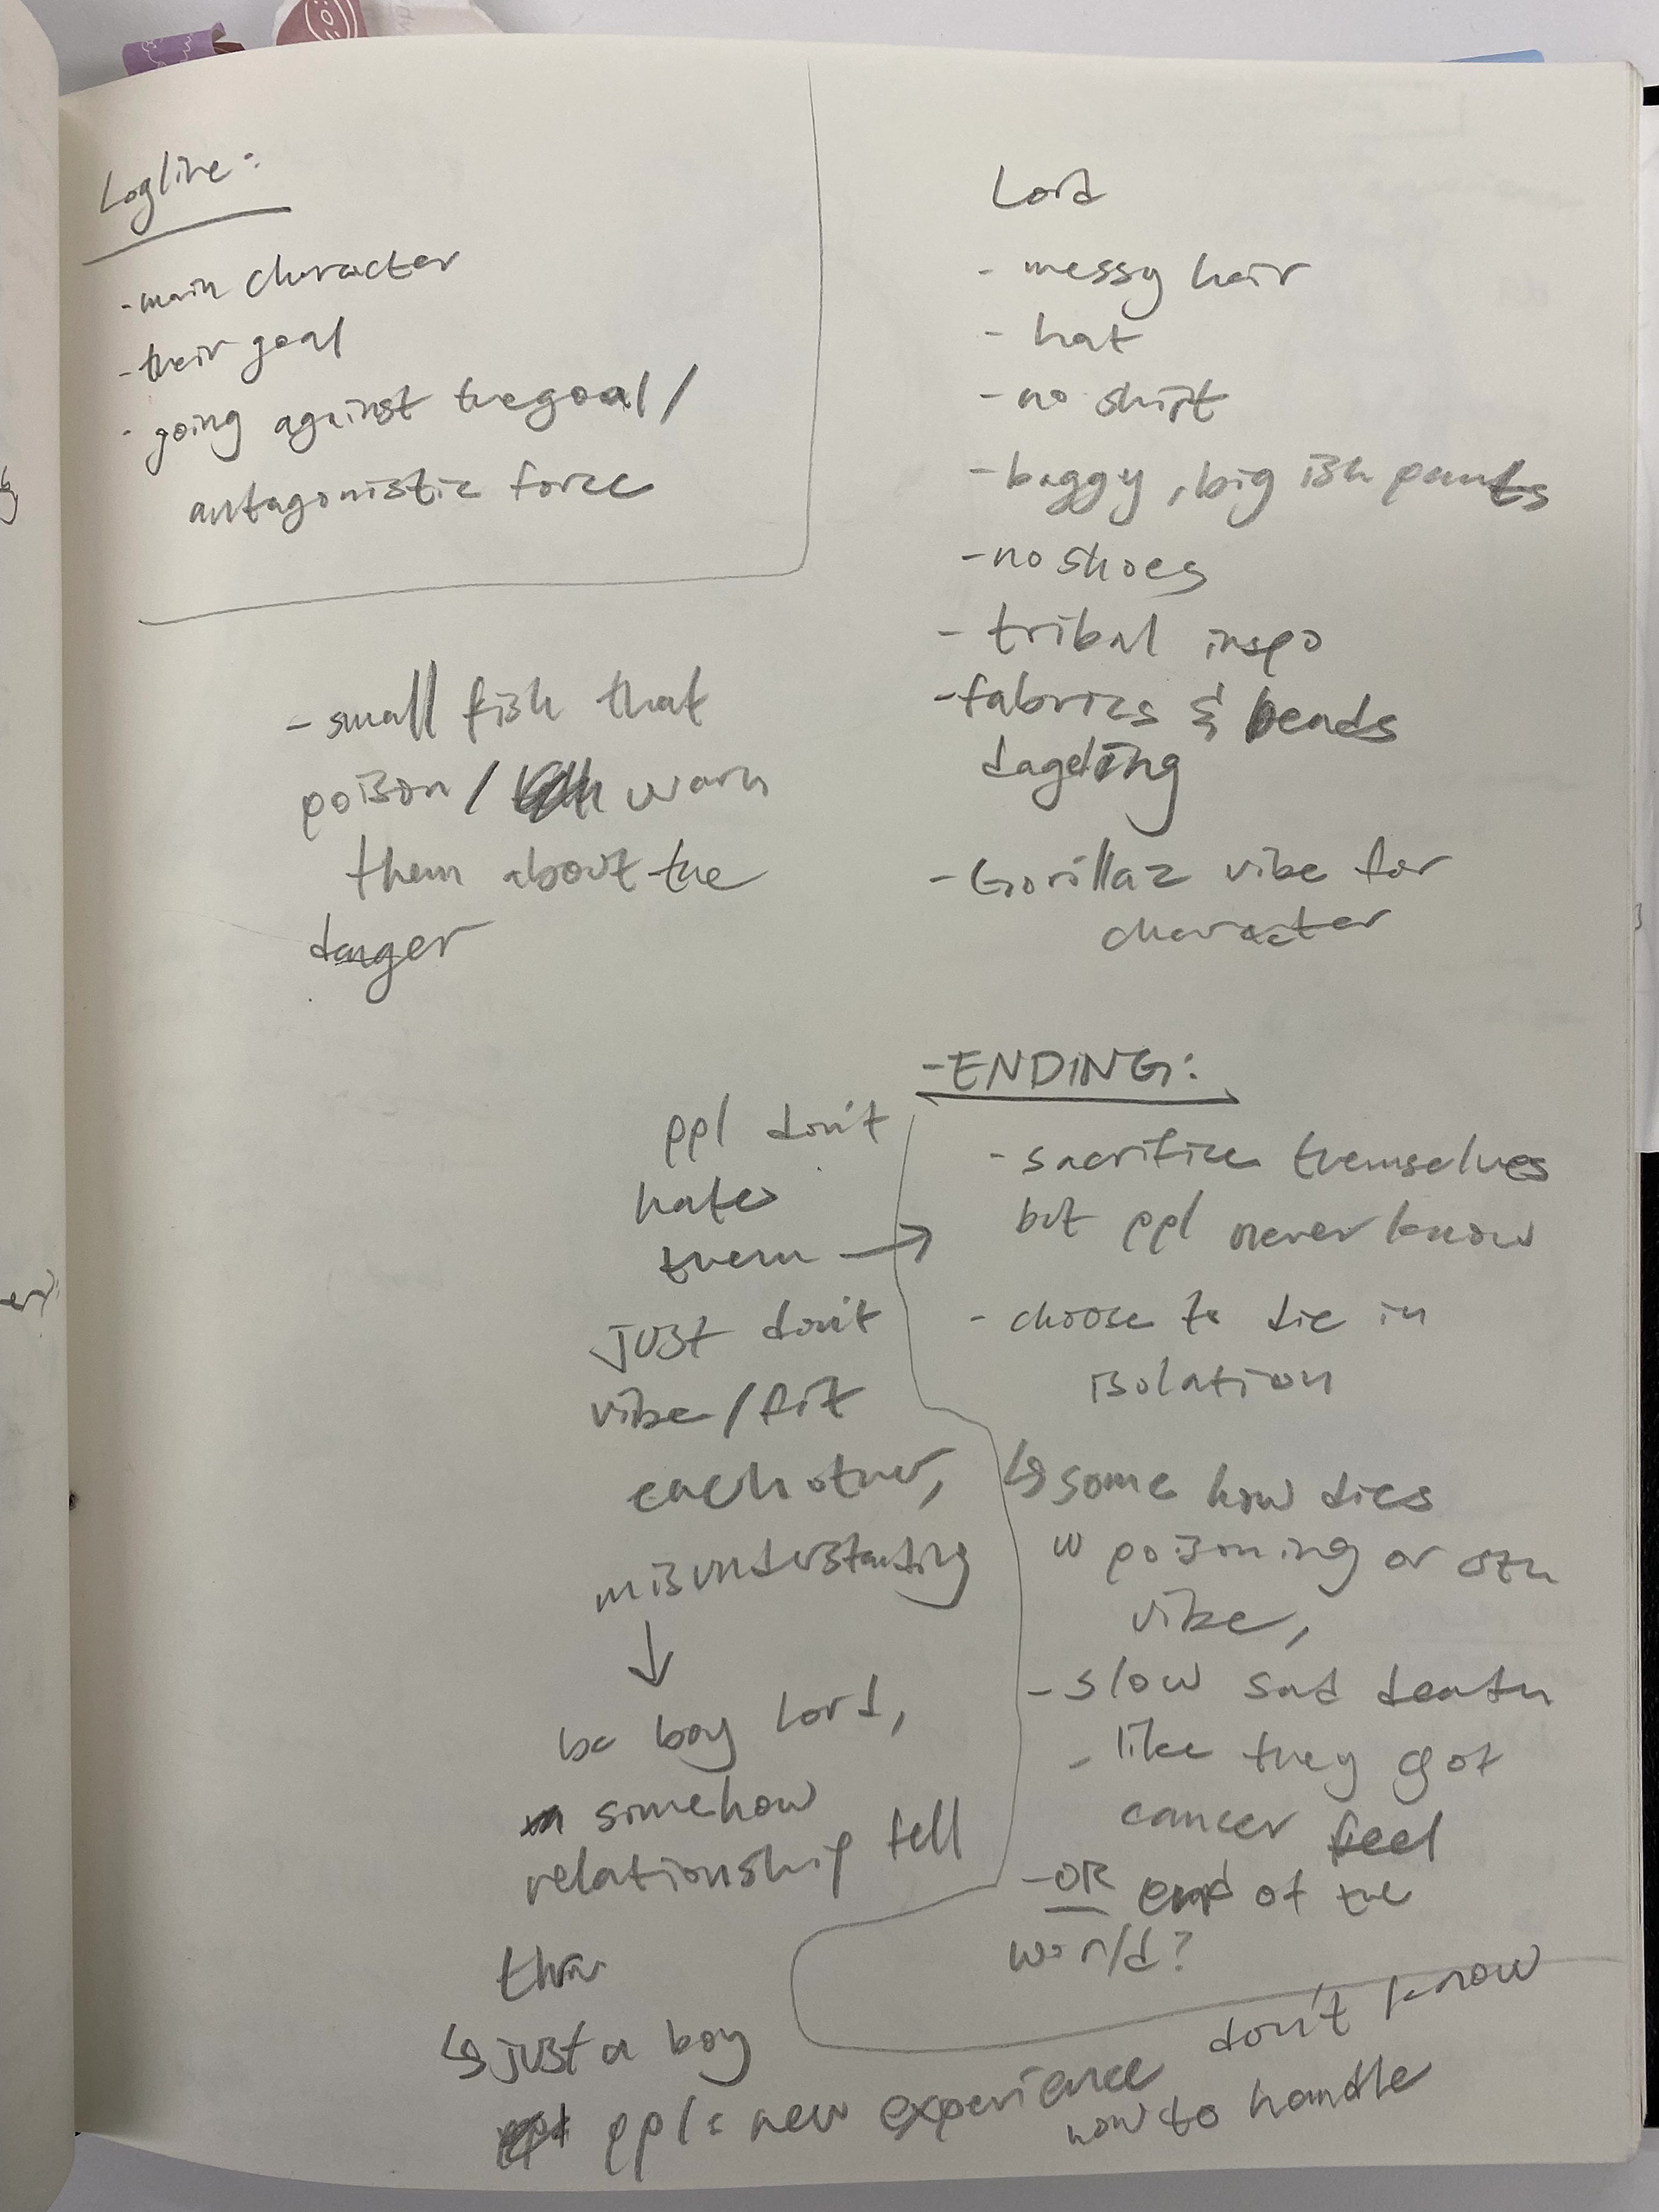 Logline:
-main character
-their goal
- going against the goal/
antagonistic force
-small fish that
poison/ warn
them about the
danger
Lord
- messy hair
- hat
- no shirt
- baggy, big ish pants
- no shoes
- tribal inspo
- fabrics & beads
dageling
- Gorillaz vibe for
character
-ENDING:
- sacrifice themselves
but ppl never know
- choose to die in
isolation
↳ some how dies
w poisoning or sth
vibe,
- slow sad death
- like they got
cancer feel
- OR end of the
world?
ppl don't
hate
them →
just don't
vibe/fit
each other,
misunderstanding
↓
bc boy lord,
somehow
relationship fell
thru
↳ just a boy
ppl: new experience don't know
how to handle